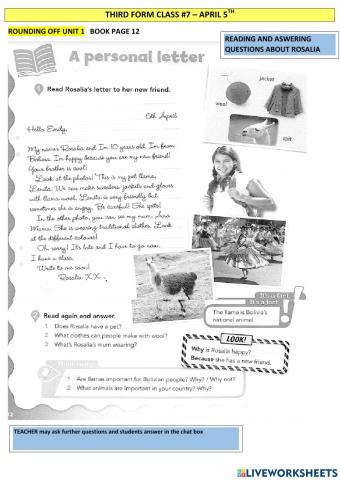 THIRD FORM CLASS #7 – APRIL 5TH
ROUNDING OFF UNIT 1 BOOK PAGE 12
READING AND ASWERING
QUESTIONS ABOUT ROSALIA
A personal letter
1 Read Rosalia's letter to her new friend.
jacket
wool
spit
6th April
Hello Emily,
My name's Rosalia and I'm 10 years old. I'm from
Bolivia. I'm happy because you are my new friend!
Your brother is cool!
Look at the photos! This is my pet llama,
Lanita. We can make sweaters, jackets and gloves
with llama wool. Lanita is very friendly but
sometimes she is angry. Be careful! She spits!
In the other photo, you can see my mum, Ana
Maria. She is wearing traditional clothes. Look
at the different colours!
Oh sorry! It's late and I have to go now.
I have a class.
Write to me soon!
Rosalia XX
It's a fact
It's a fact
The llama is Bolivia's
national animal.
2 Read again and answer.
1 Does Rosalia have a pet?
2 What clothes can people make with wool?
3 What's Rosalia's mum wearing?
LOOK!
Why is Rosalia happy?
Because she has a new friend.
1 Are llamas important for Bolivian people? Why? / Why not?
2 What animals are important in your country? Why?
12
TEACHER may ask further questions and students answer in the chat box
LIVEWORKSHEETS